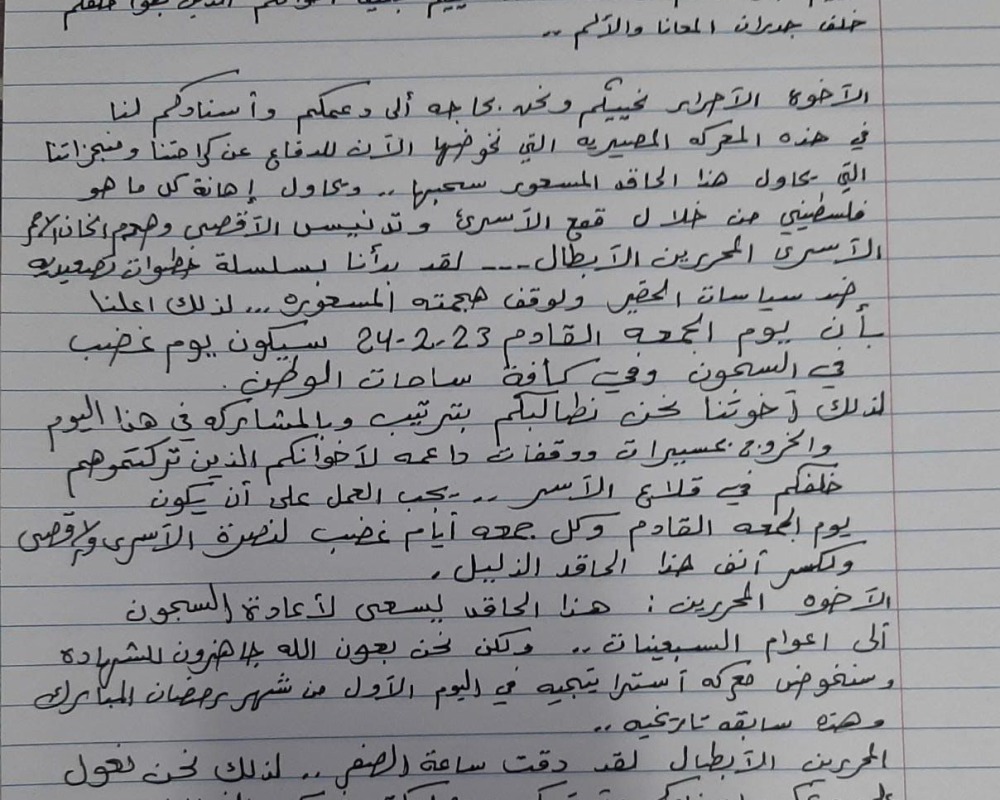 خلف جدران المعانا والألم ..
الأخوة الأحرار نحييكم ونحن بحاجه ألى دعمكم وأسنادكم لنا
في هذه المعركه المصيريه التي نخوضها الآن للدفاع عن كرامتنا ومنجزاتنا
التي يحاول هذا الحاقد المسعور سحبها .. ويحاول إهانة كل ما هو
فلسطيني من خلال قمع الأسرى وتدنيس الأقصى وهدم الخان الأحمر
الأسرى المحررين الأبطال ... لقد بدأنا بسلسلة خطوات تصعيديه
ضد سياسات الحقير ولوقف هجمته المسعوره ... لذلك اعلنا
بأن يوم الجمعه القادم 24-2-23 سيكون يوم غضب
في السجون وفي كافة ساحات الوطن .
لذلك أخوتنا نحن نطالبكم بترتيب وبالمشاركه في هذا اليوم
والخروج بمسيرات ووقفات داعمه لأخوانكم الذين تركتموهم
خلفكم في قلاع الأسر .. يجب العمل على أن يكون
يوم الجمعه القادم وكل جمعه أيام غضب لنصرة الأسرى والأقصى
ولكسر أنف هذا الحاقد الذليل .
الأخوه المحررين : هذا الحاقد يسعى لأعادة السجون
ألى اعوام السبعينات .. ولكن نحن بعون الله جاهزون للشهادة
وسنخوض معركه أستراتيجيه في اليوم الأول من شهر رمضان المبارك
وهذه سابقه تاريخيه ..
المحررين الأبطال لقد دقت ساعة الصفر .. لذلك نحن نقول